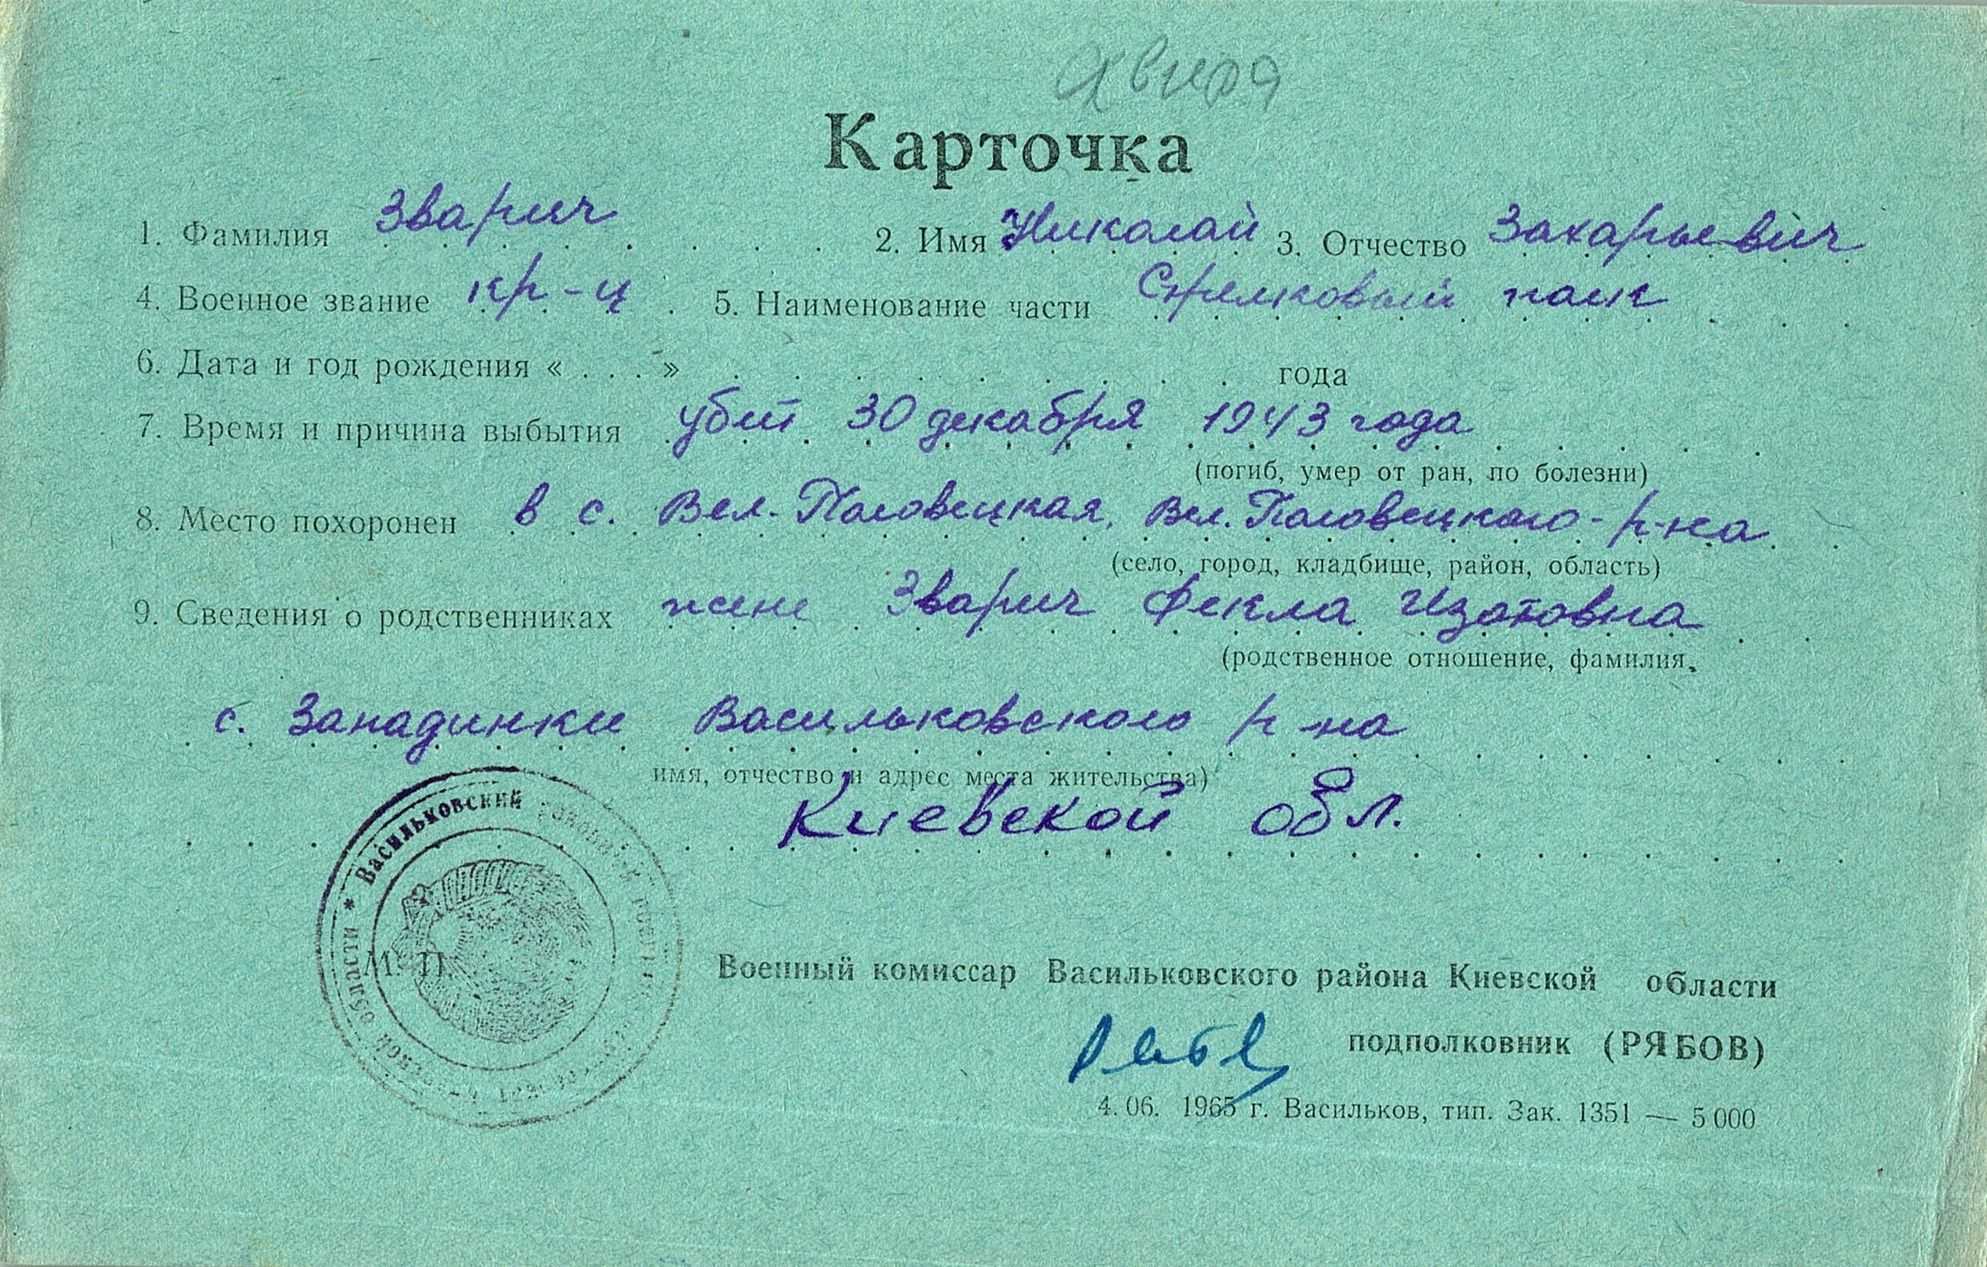 Карточка
1. Фамилия Зварич 2. Имя Николай 3. Отчество Захарьевич
4. Военное звание кр-ц 5. Наименование части Стрелковый полк
6. Дата и год рождения « . . . » года
7. Время и причина выбытия убит 30 декабря 1943 года
(погиб, умер от ран, по болезни)
8. Место похоронен в с. Вел.-Половецкая, Вел. Половецкого р-на
(село, город, кладбище, район, область)
9. Сведения о родственниках жене Зварич Фекла Изотовна
(родственное отношение, фамилия,
с. Западинки Васильковского р-на
имя, отчество и адрес места жительства)
Киевской обл.
* Васильковский районный области
М. П.
Военный комиссар Васильковского района Киевской области
подполковник (РЯБОВ)
4. 06. 1965 г. Васильков, тип. Зак. 1351 — 5 000